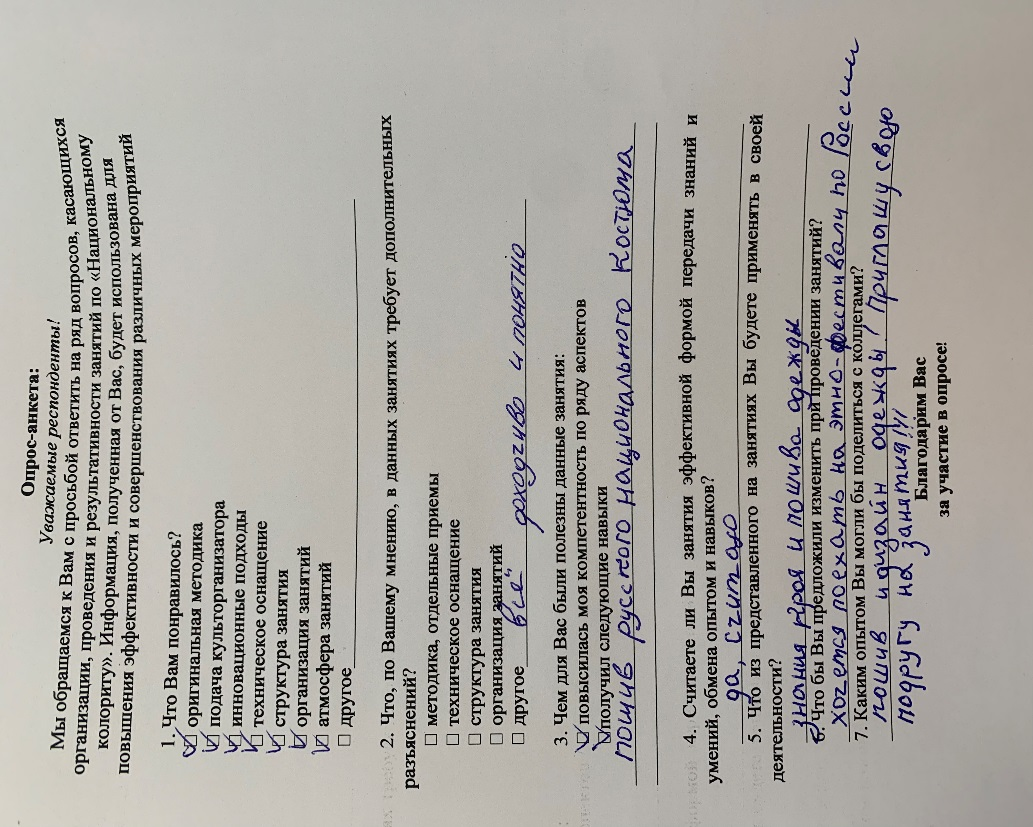 Опрос-анкета:
Уважаемые респонденты!
Мы обращаемся к Вам с просьбой ответить на ряд вопросов, касающихся
организации, проведения и результативности занятий по «Национальному
колориту». Информация, полученная от Вас, будет использована для
повышения эффективности и совершенствования различных мероприятий
1. Что Вам понравилось?
☑ оригинальная методика
☑ подача культорганизатора
☑ инновационные подходы
☑ техническое оснащение
☑ структура занятия
☑ организация занятий
☑ атмосфера занятий
☐ другое
2. Что, по Вашему мнению, в данных занятиях требует дополнительных
разъяснений?
☐ методика, отдельные приемы
☐ техническое оснащение
☐ структура занятия
☐ организация занятий
☐ другое всё доходчиво и понятно
3. Чем для Вас были полезны данные занятия:
☑ повысилась моя компетентность по ряду аспектов
☑ получил следующие навыки
пошив русского национального костюма
4. Считаете ли Вы занятия эффективной формой передачи знаний и
умений, обмена опытом и навыков?
да, считаю
5. Что из представленного на занятиях Вы будете применять в своей
деятельности?
знания кроя и пошива одежды
6. Что бы Вы предложили изменить при проведении занятий?
хочется поехать на этно-фестивали по России
7. Каким опытом Вы могли бы поделиться с коллегами?
пошив и дизайн одежды! Приглашу свою
подругу на занятия!!!
Благодарим Вас
за участие в опросе!